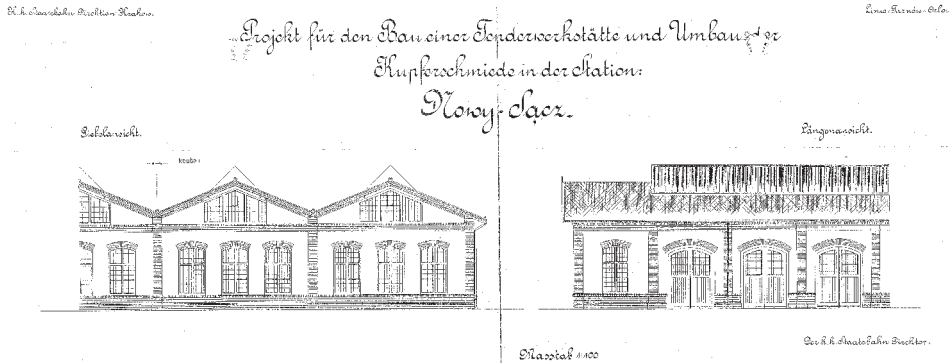 K.k. Staatsbahn Direktion Krakow.
Linie: Tarnów-Orlo.
Projekt für den Bau einer Tenderwerkstätte und Umbau der
Kupferschmiede in der Station:
Nowy-Sącz.
Giebelansicht.
Längenansicht.
Masstab 1:100
Der k.k. Staatsbahn Direktor.